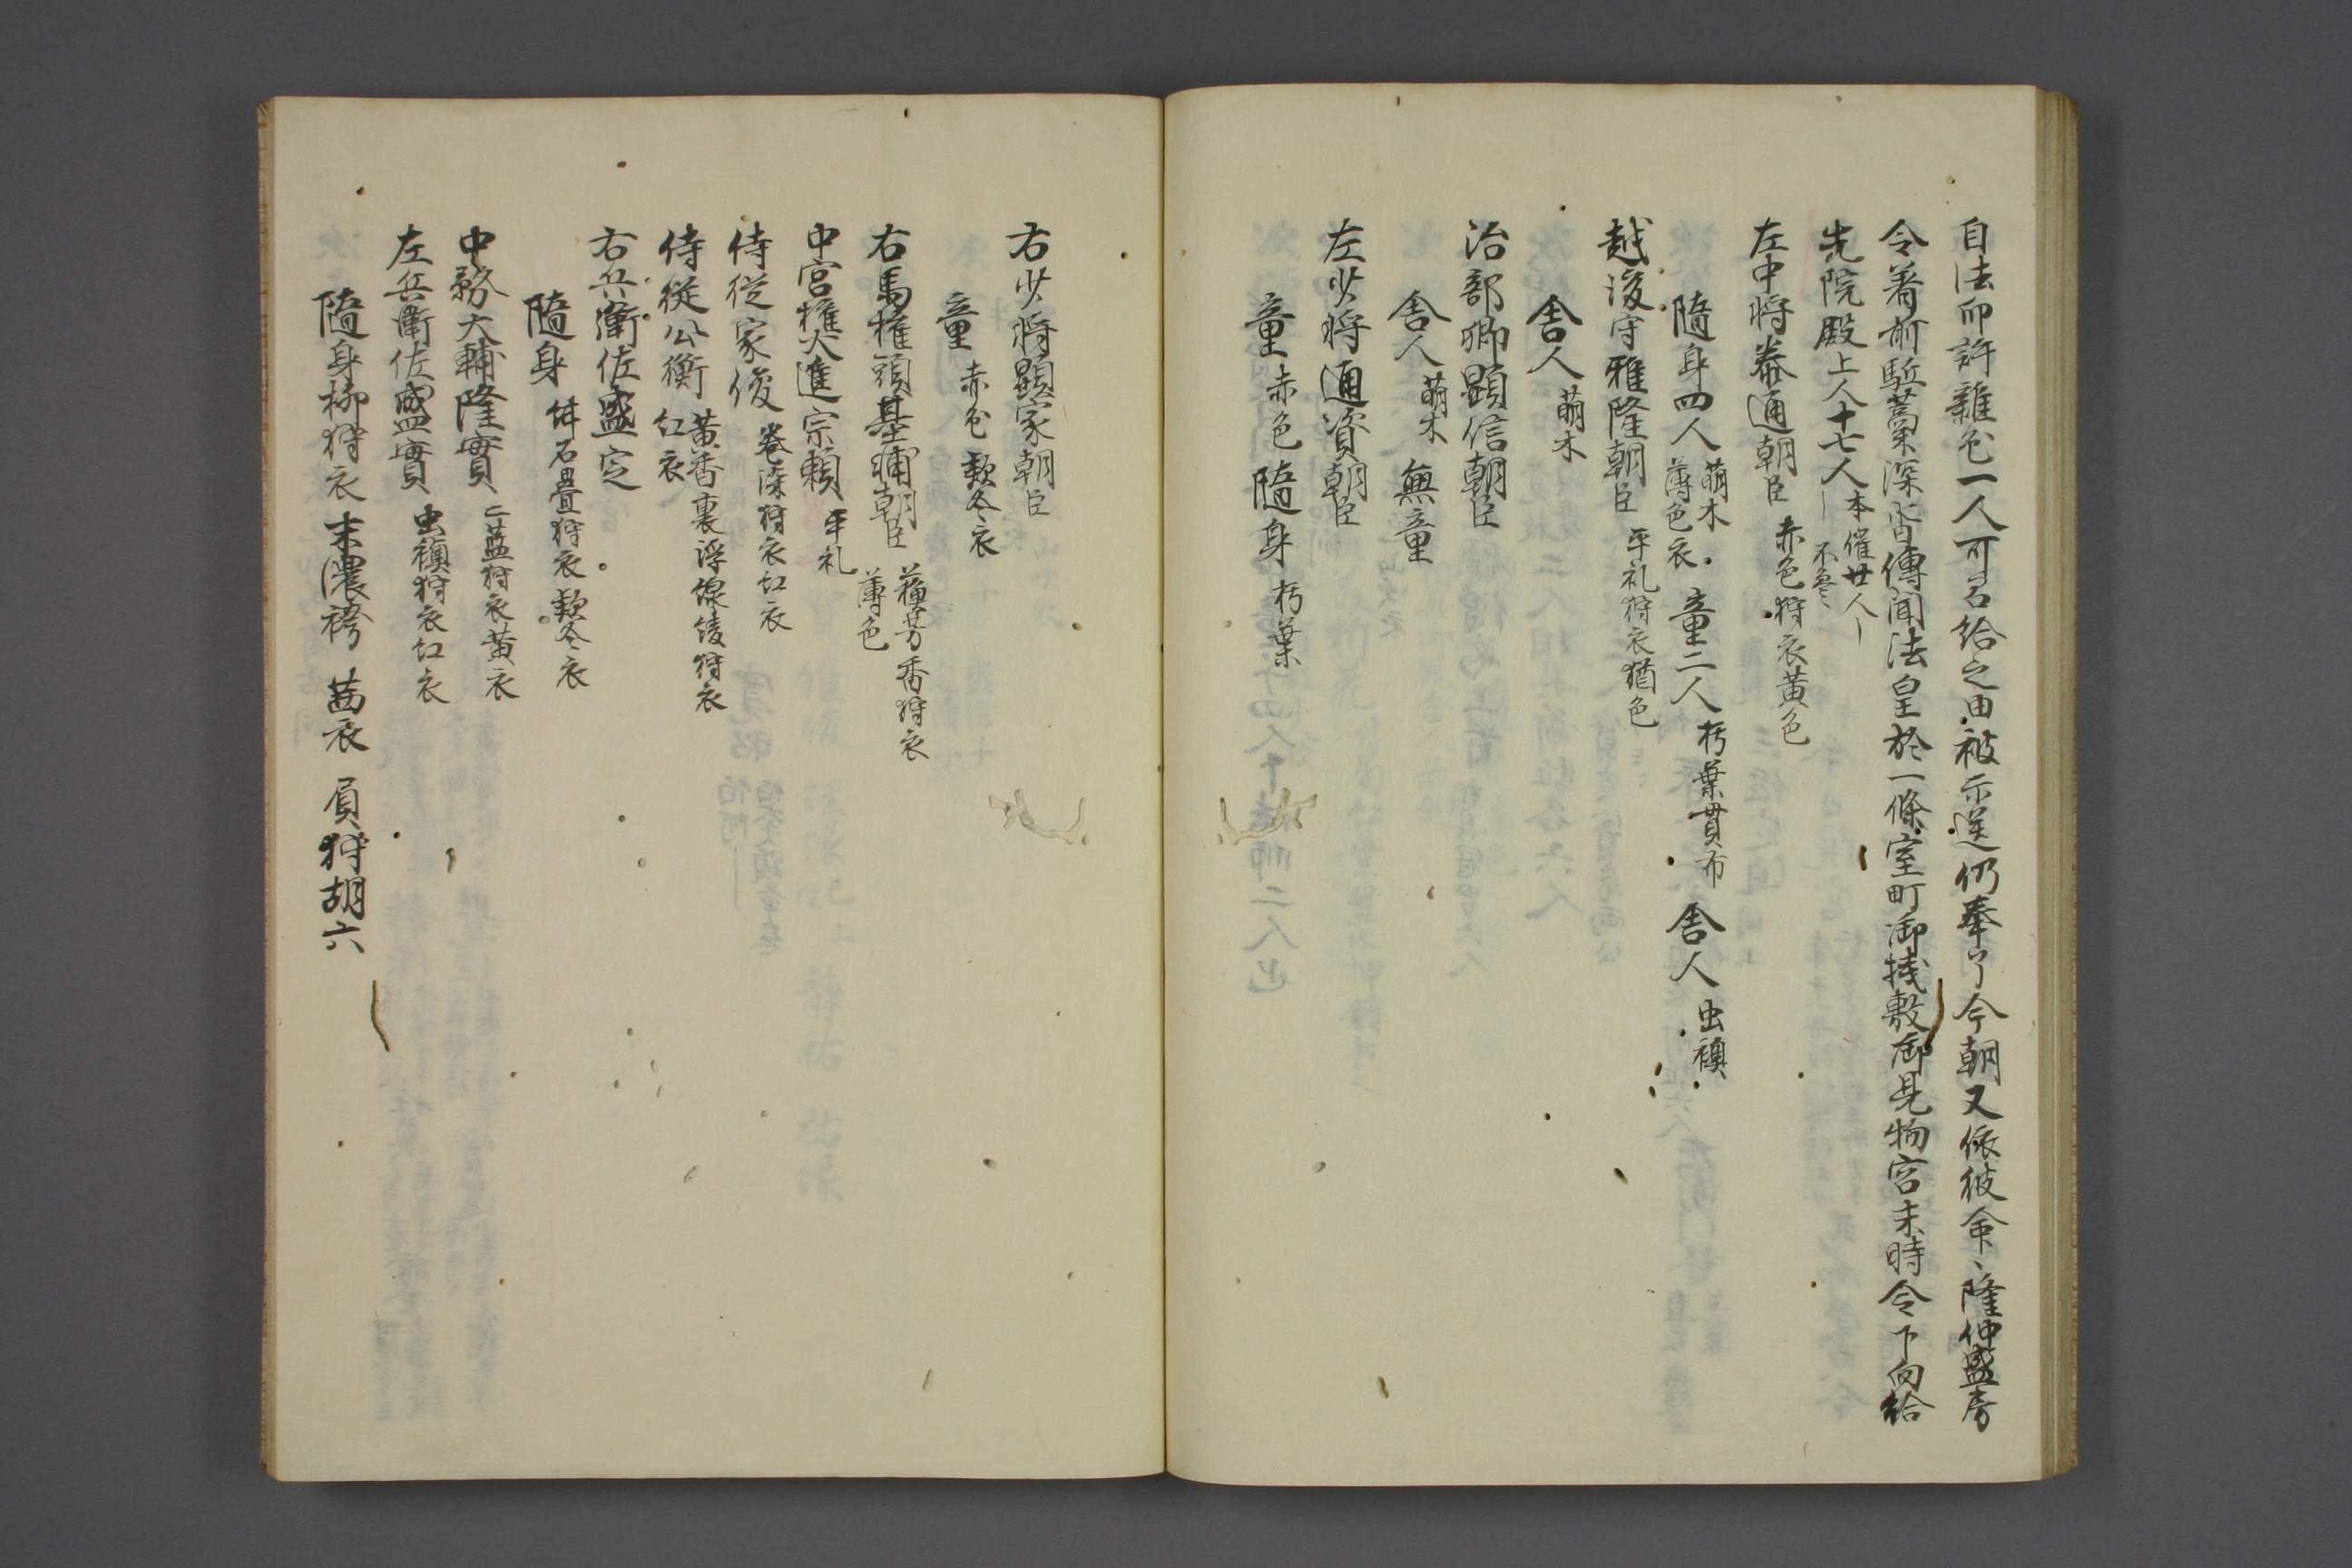 自法印許雜色一人可召給之由被示送仍奉了今朝又依彼命、隆仲盛房
令著前駈藁深沓傳聞法皇於一條室町御桟敷御見物宮未時令下向給
先院殿上人十七人 本催廿人 不参
左中将兼通朝臣 赤色狩衣黄色
隨身四人 萌木 薄色衣 童二人 朽葉貫布 舎人 虫襖
越後守雅隆朝臣 平礼狩衣猶色
舎人 萌木
治部卿顕信朝臣
舎人 萌木 無童
左少将通資朝臣
童 赤色 隨身 朽葉
右少将顕家朝臣
童 赤色 款冬衣
右馬權頭基輔朝臣 蘓芳香狩衣 薄色
中宮權大進宗頼 平礼
侍従家俊 巻染狩衣紅衣
侍従公衡 黄香裏浮線綾狩衣 紅衣
右兵衛佐盛定
隨身 石畳狩衣款冬衣
中務大輔隆實 二藍狩衣黄衣
左兵衛佐盛實 虫襖狩衣紅衣
隨身柳狩衣末濃袴 茜衣 負狩胡六